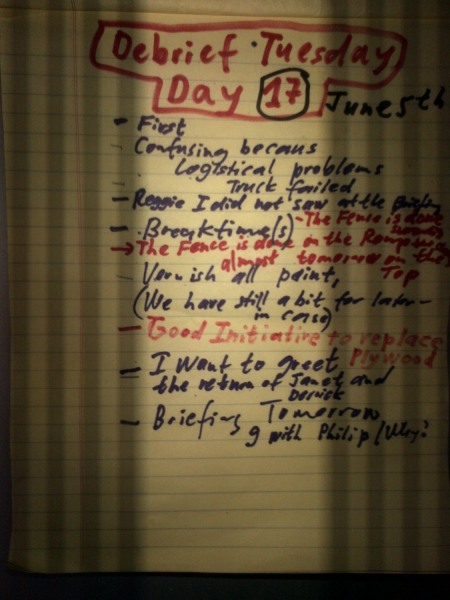 Debrief Tuesday
Day 17 June 5th
- First
- Confusing becaus
Logistical problems
Truck failed
- Reggie I did not saw at the Briefing
- Breaktime(s) - The Fence is done
→ The Fence is done on the Ramp
almost tomorrow on the
Top
- Varnish all paint,
(We have still a bit for later -
in case)
- Good Initiative to replace
Plywood
- I Want to greet
the return of Janet and
Derrick
- Briefing Tomorrow
9 with Philip / Why?